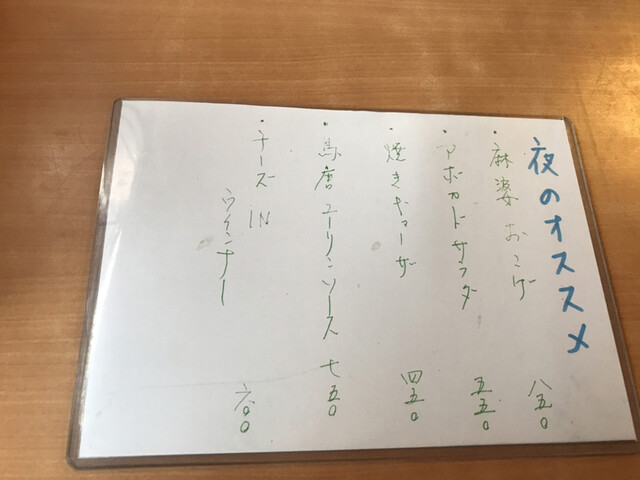 夜のオススメ
・麻婆おこげ 八五〇
・アボカドサラダ 五五〇
・焼きギョーザ 四五〇
・鳥唐ユーリンソース 七五〇
・チーズIN
ウインナー 六〇〇